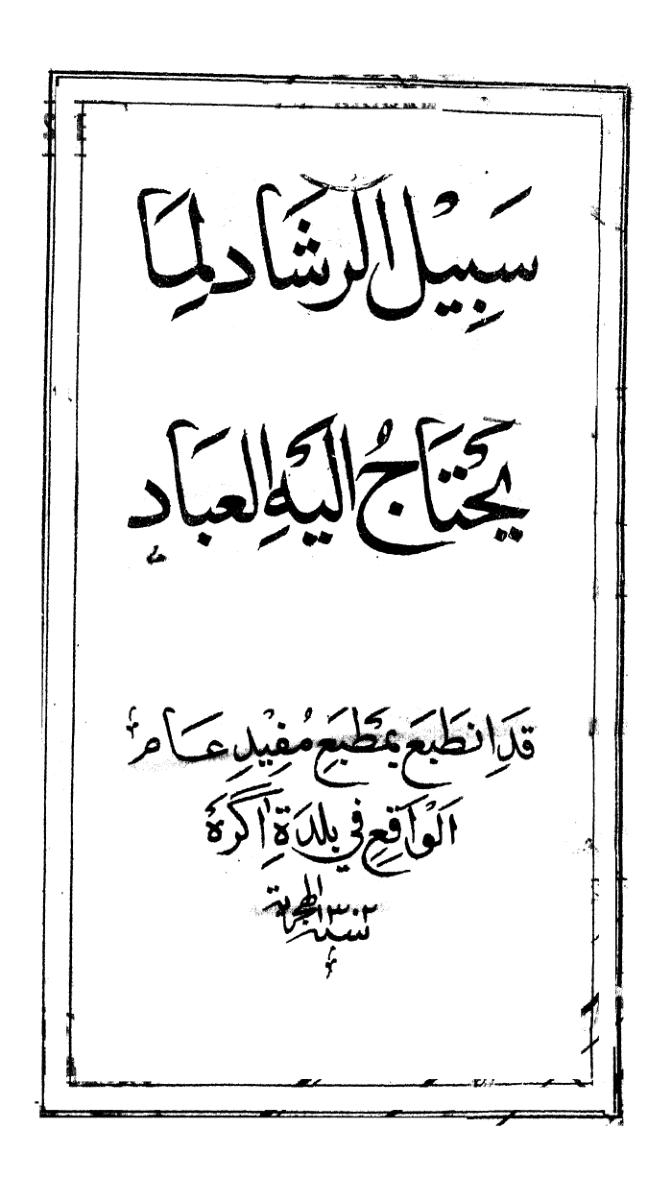 سَبِيْلُ الرَشَادِ لِمَا
يَحْتَاجُ اِلَيْهِ العِبَاد
قَدِ انطَبَعَ بِمَطْبَعِ مُفِيْدِ عَام
اَلْوَاقِعِ فِي بَلْدَةِ اٰگرَهْ
سنة ١٣٠٢ الهجرية